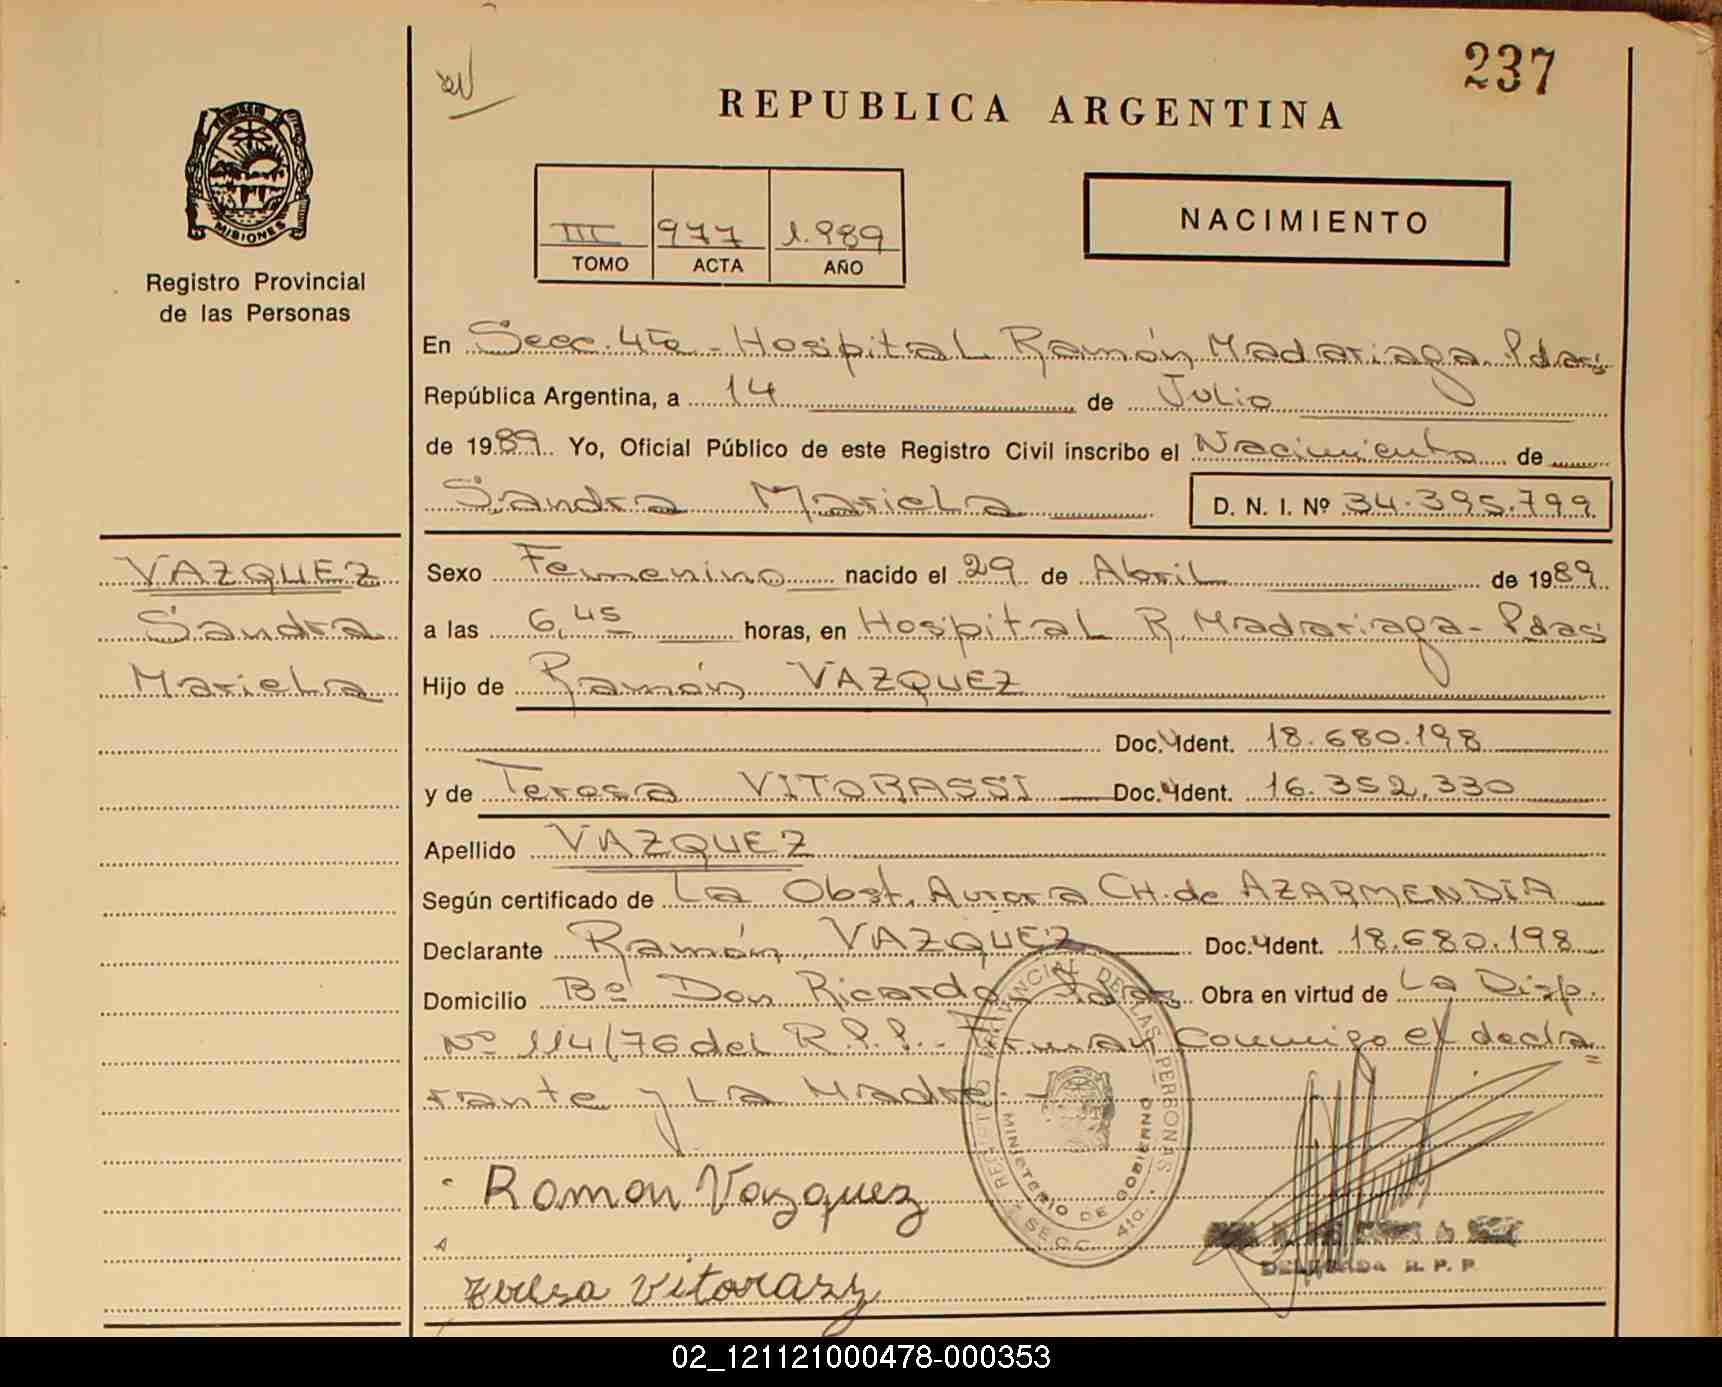 237
REPUBLICA ARGENTINA
MISIONES
Registro Provincial
de las Personas
III 977 1.989
TOMO ACTA AÑO
NACIMIENTO
En Secc. 4ta - Hospital Ramón Madariaga Pdas
República Argentina, a 14 de Julio
de 1989. Yo, Oficial Público de este Registro Civil inscribo el Nacimiento de
Sandra Mariela D. N. I. Nº 34.395.799
VAZQUEZ
Sandra
Mariela
Sexo Femenino nacido el 29 de Abril de 1989
a las 6,45 horas, en Hospital R. Madariaga - Pdas
Hijo de Ramón VAZQUEZ
Doc. Ident. 18.680.198
y de Teresa VITORASSI Doc. Ident. 16.352.330
Apellido VAZQUEZ
Según certificado de La Obst. Aurora CH. de AZARMENDIA
Declarante Ramón VAZQUEZ Doc. Ident. 18.680.198
Domicilio Bº Don Ricardo - Pdas Obra en virtud de La Disp.
Nº 114/76 del R.P.P. - Firman Conmigo el decla
rante y La Madre. -
REGISTRO PROVINCIAL DE LAS PERSONAS
MINISTERIO DE GOBIERNO
SECC. 4ta.
Ramon Vazquez
DELEGADA R. P. P.
Teresa Vitorassi
02_121121000478-000353